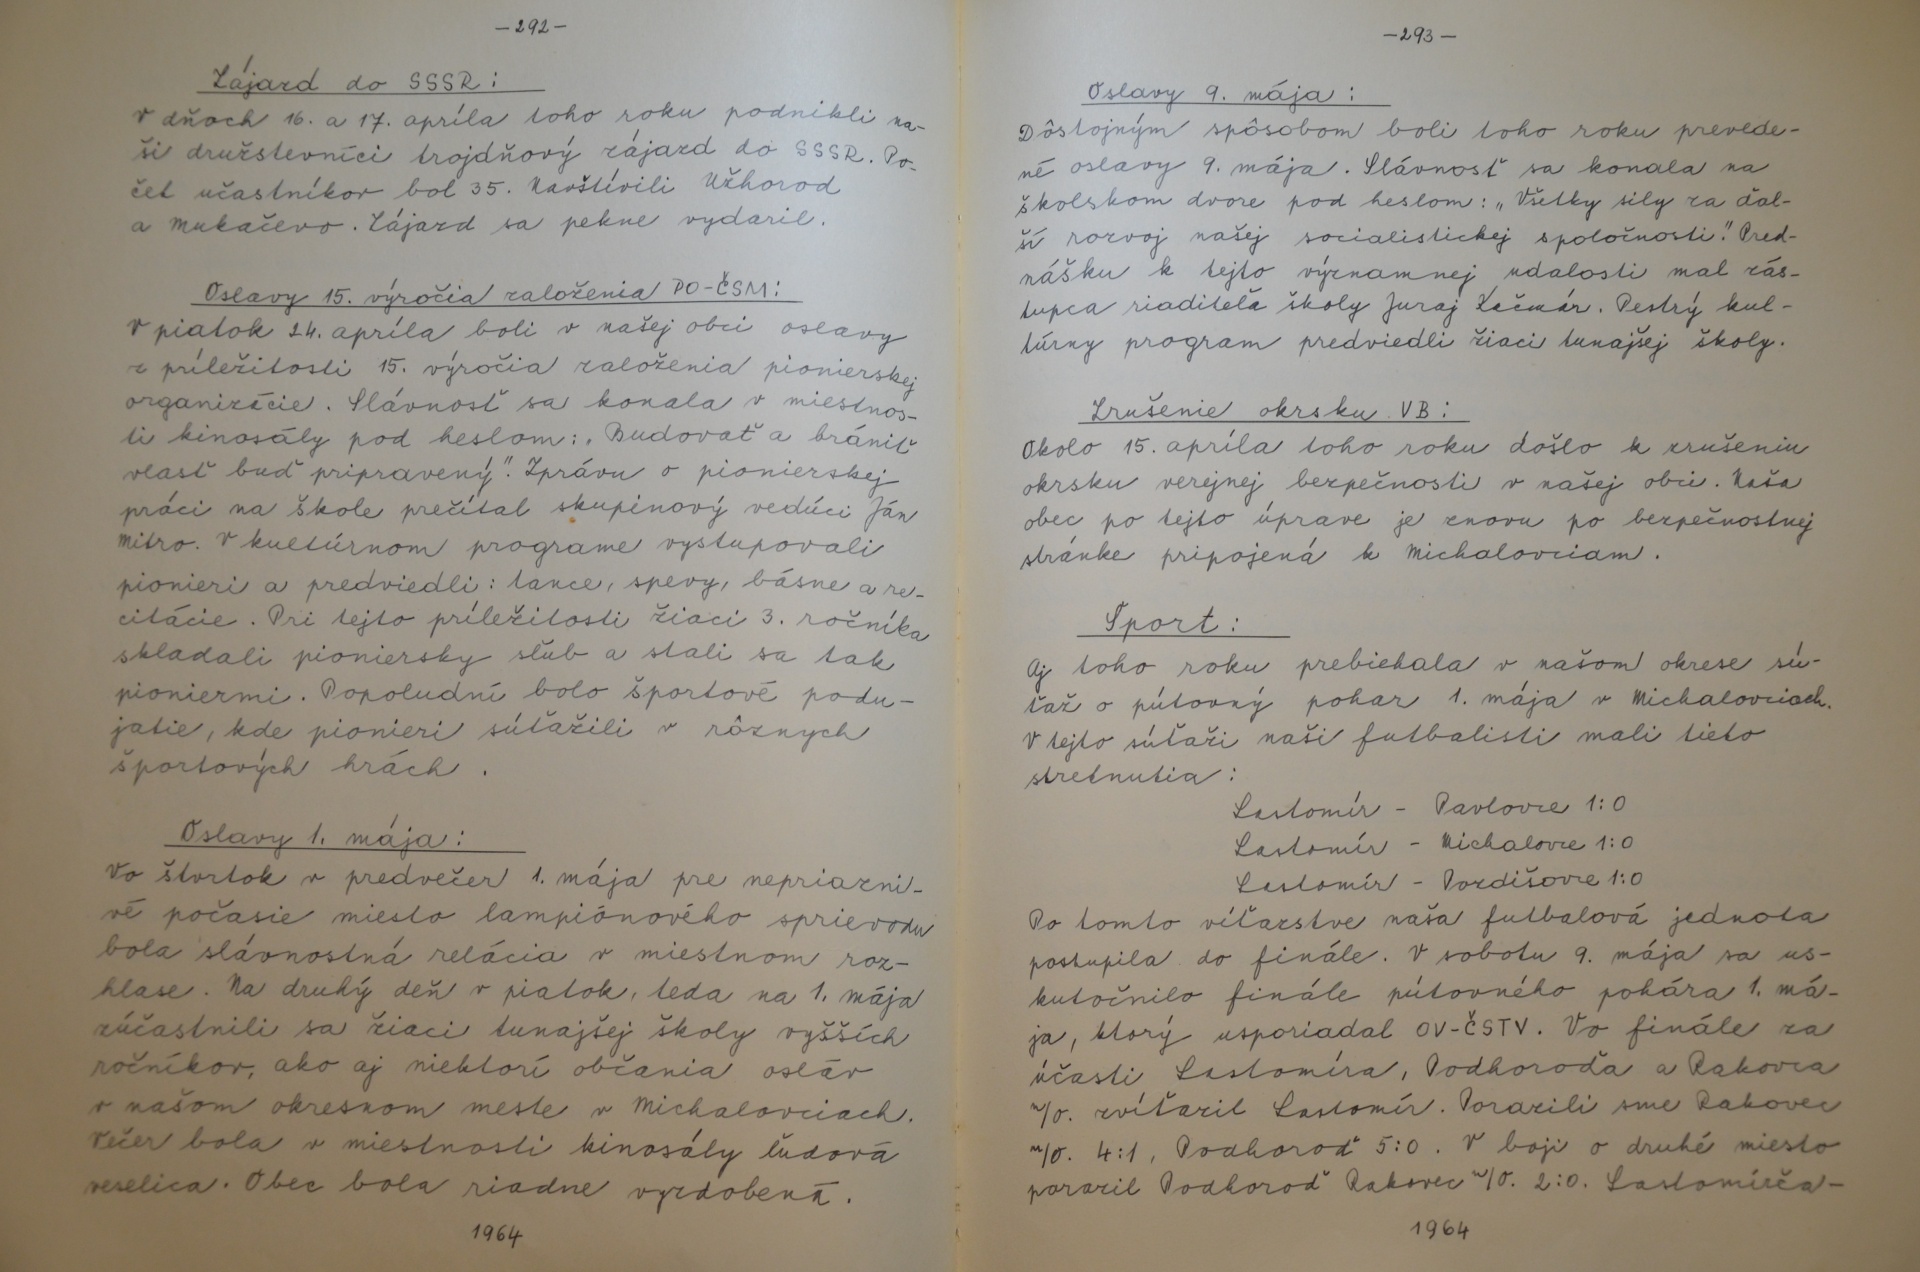 -292-
Zájazd do SSSR:
V dňoch 16. a 17. apríla toho roku podnikli na-
ši družstevníci trojdňový zájazd do SSSR. Po-
čet učastníkov bol 35. Navštívili Užhorod
a Mukačevo. Zájazd sa pekne vydaril.
Oslavy 15. výročia založenia PO-ČSM:
V piatok 24. apríla boli v našej obci oslavy
z príležitosti 15. výročia založenia pionierskej
organizácie. Slávnosť sa konala v miestnos-
ti kinosály pod heslom: „Budovať a brániť
vlasť buď pripravený". Zprávu o pionierskej
práci na škole prečítal skupinový vedúci Ján
Mitro. V kultúrnom programe vystupovali
pionieri a predviedli: tance, spevy, básne a re-
citácie. Pri tejto príležitosti žiaci 3. ročníka
skladali pioniersky sľub a stali sa tak
pioniermi. Popoludní bolo športové podu-
jatie, kde pionieri súťažili v rôznych
športových hrách.
Oslavy 1. mája:
Vo štvrtok v predvečer 1. mája pre nepriazni-
vé počasie miesto lampiónového sprievodu
bola slávnostná relácia v miestnom roz-
hlase. Na druhý deň v piatok, teda na 1. mája
zúčastnili sa žiaci tunajšej školy vyšších
ročníkov, ako aj niektorí občania osláv
v našom okresnom meste v Michalovciach.
Večer bola v miestnosti kinosály ľudová
veselica. Obec bola riadne vyzdobená.
1964
-293-
Oslavy 9. mája:
Dôstojným spôsobom boli toho roku prevede-
né oslavy 9. mája. Slávnosť sa konala na
školskom dvore pod heslom: „Všetky sily za ďal-
ší rozvoj našej socialistickej spoločnosti." Pred-
nášku k tejto významnej udalosti mal zás-
tupca riaditeľa školy Juraj Kačmár. Pestrý kul-
túrny program predviedli žiaci tunajšej školy.
Zrušenie okrsku VB:
Okolo 15. apríla toho roku došlo k zrušeniu
okrsku verejnej bezpečnosti v našej obci. Naša
obec po tejto úprave je znovu po bezpečnostnej
stránke pripojená k Michalovciam.
Šport:
Aj toho roku prebiehala v našom okrese sú-
ťaž o pútovný pohar 1. mája v Michalovciach.
V tejto súťaži naši futbalisti mali tieto
stretnutia:
Lastomír - Pavlovce 1:0
Lastomír - Michalovce 1:0
Lastomír - Pozdišovce 1:0
Po tomto víťazstve naša futbalová jednota
postupila do finále. V sobotu 9. mája sa us-
kutočnilo finále pútovného pohára 1. má-
ja, ktorý usporiadal OV-ČSTV. Vo finále za
účasti Lastomíra, Podhoroďa a Rakovca
n/O. zvíťazil Lastomír. Porazili sme Rakovec
n/O. 4:1, Podhoroď 5:0. V boji o druhé miesto
porazil Podhoroď Rakovec n/O. 2:0. Lastomírča-
1964